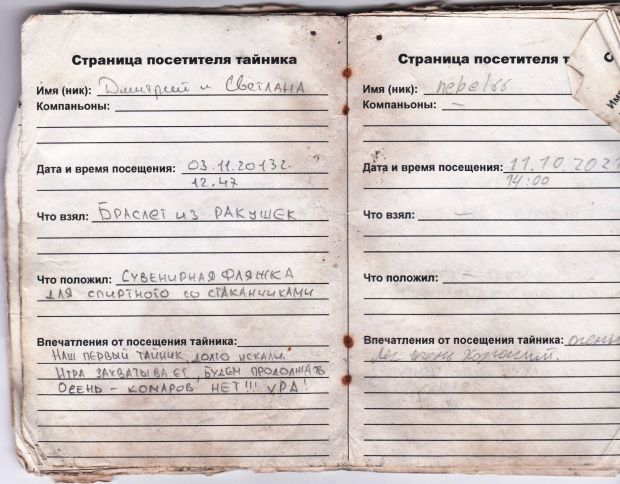 Страница посетителя тайника
Имя (ник): Дмитрий и Светлана
Компаньоны:
Дата и время посещения: 03.11.2013г.
12.47
Что взял: Браслет из ракушек
Что положил: Сувенирная фляжка
для спиртного со стаканчиками
Впечатления от посещения тайника:
Наш первый тайник, долго искали.
Игра захватывает, будем продолжать
Осень - комаров нет!!! Ура!
Страница посетителя т
Имя (ник): nebel66
Компаньоны: —
Дата и время посещения: 11.10.2021
14:00
Что взял: —
Что положил: —
Впечатления от посещения тайника: очень
Лес очень хороший.
С
Им